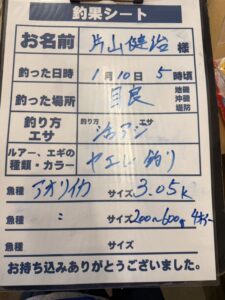 釣果シート
お名前 片山健治 様
釣った日時 1月10日 5時頃
釣った場所 目良 地磯 沖磯 堤防
釣り方 エサ 釣り方 活アジ エサ
ルアー、エギの種類・カラー ヤエン釣り
魚種 アオリイカ サイズ 3.05k
魚種 〃 サイズ 200〜600g
魚種 サイズ
お持ち込みありがとうございました。